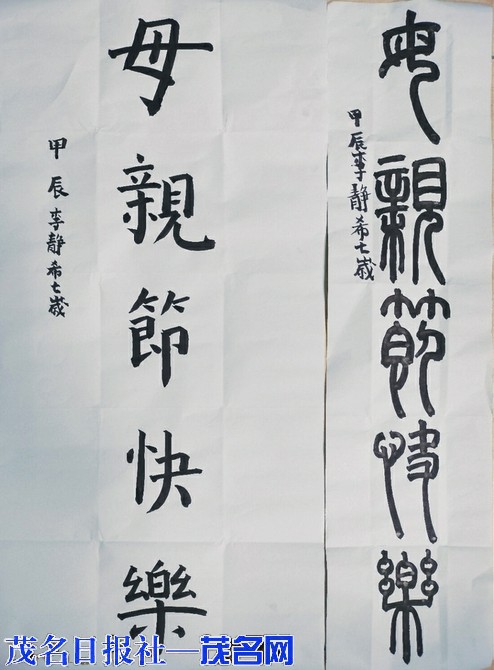 母親節快樂
甲辰李靜希七歲
母親節快樂
甲辰李靜希七歲
茂名日报社—茂名网